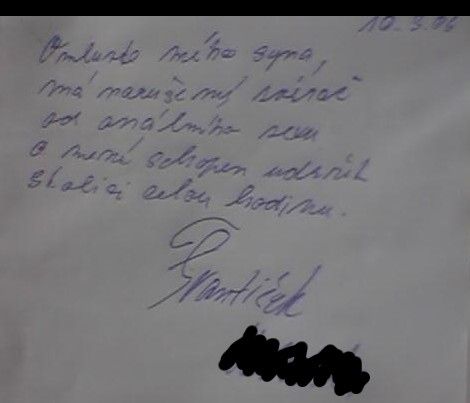 10.3.06
Omluvte mého syna,
má narušený svěrač
od análního sexu
a není schopen udržet
stolici celou hodinu.
Frantíček